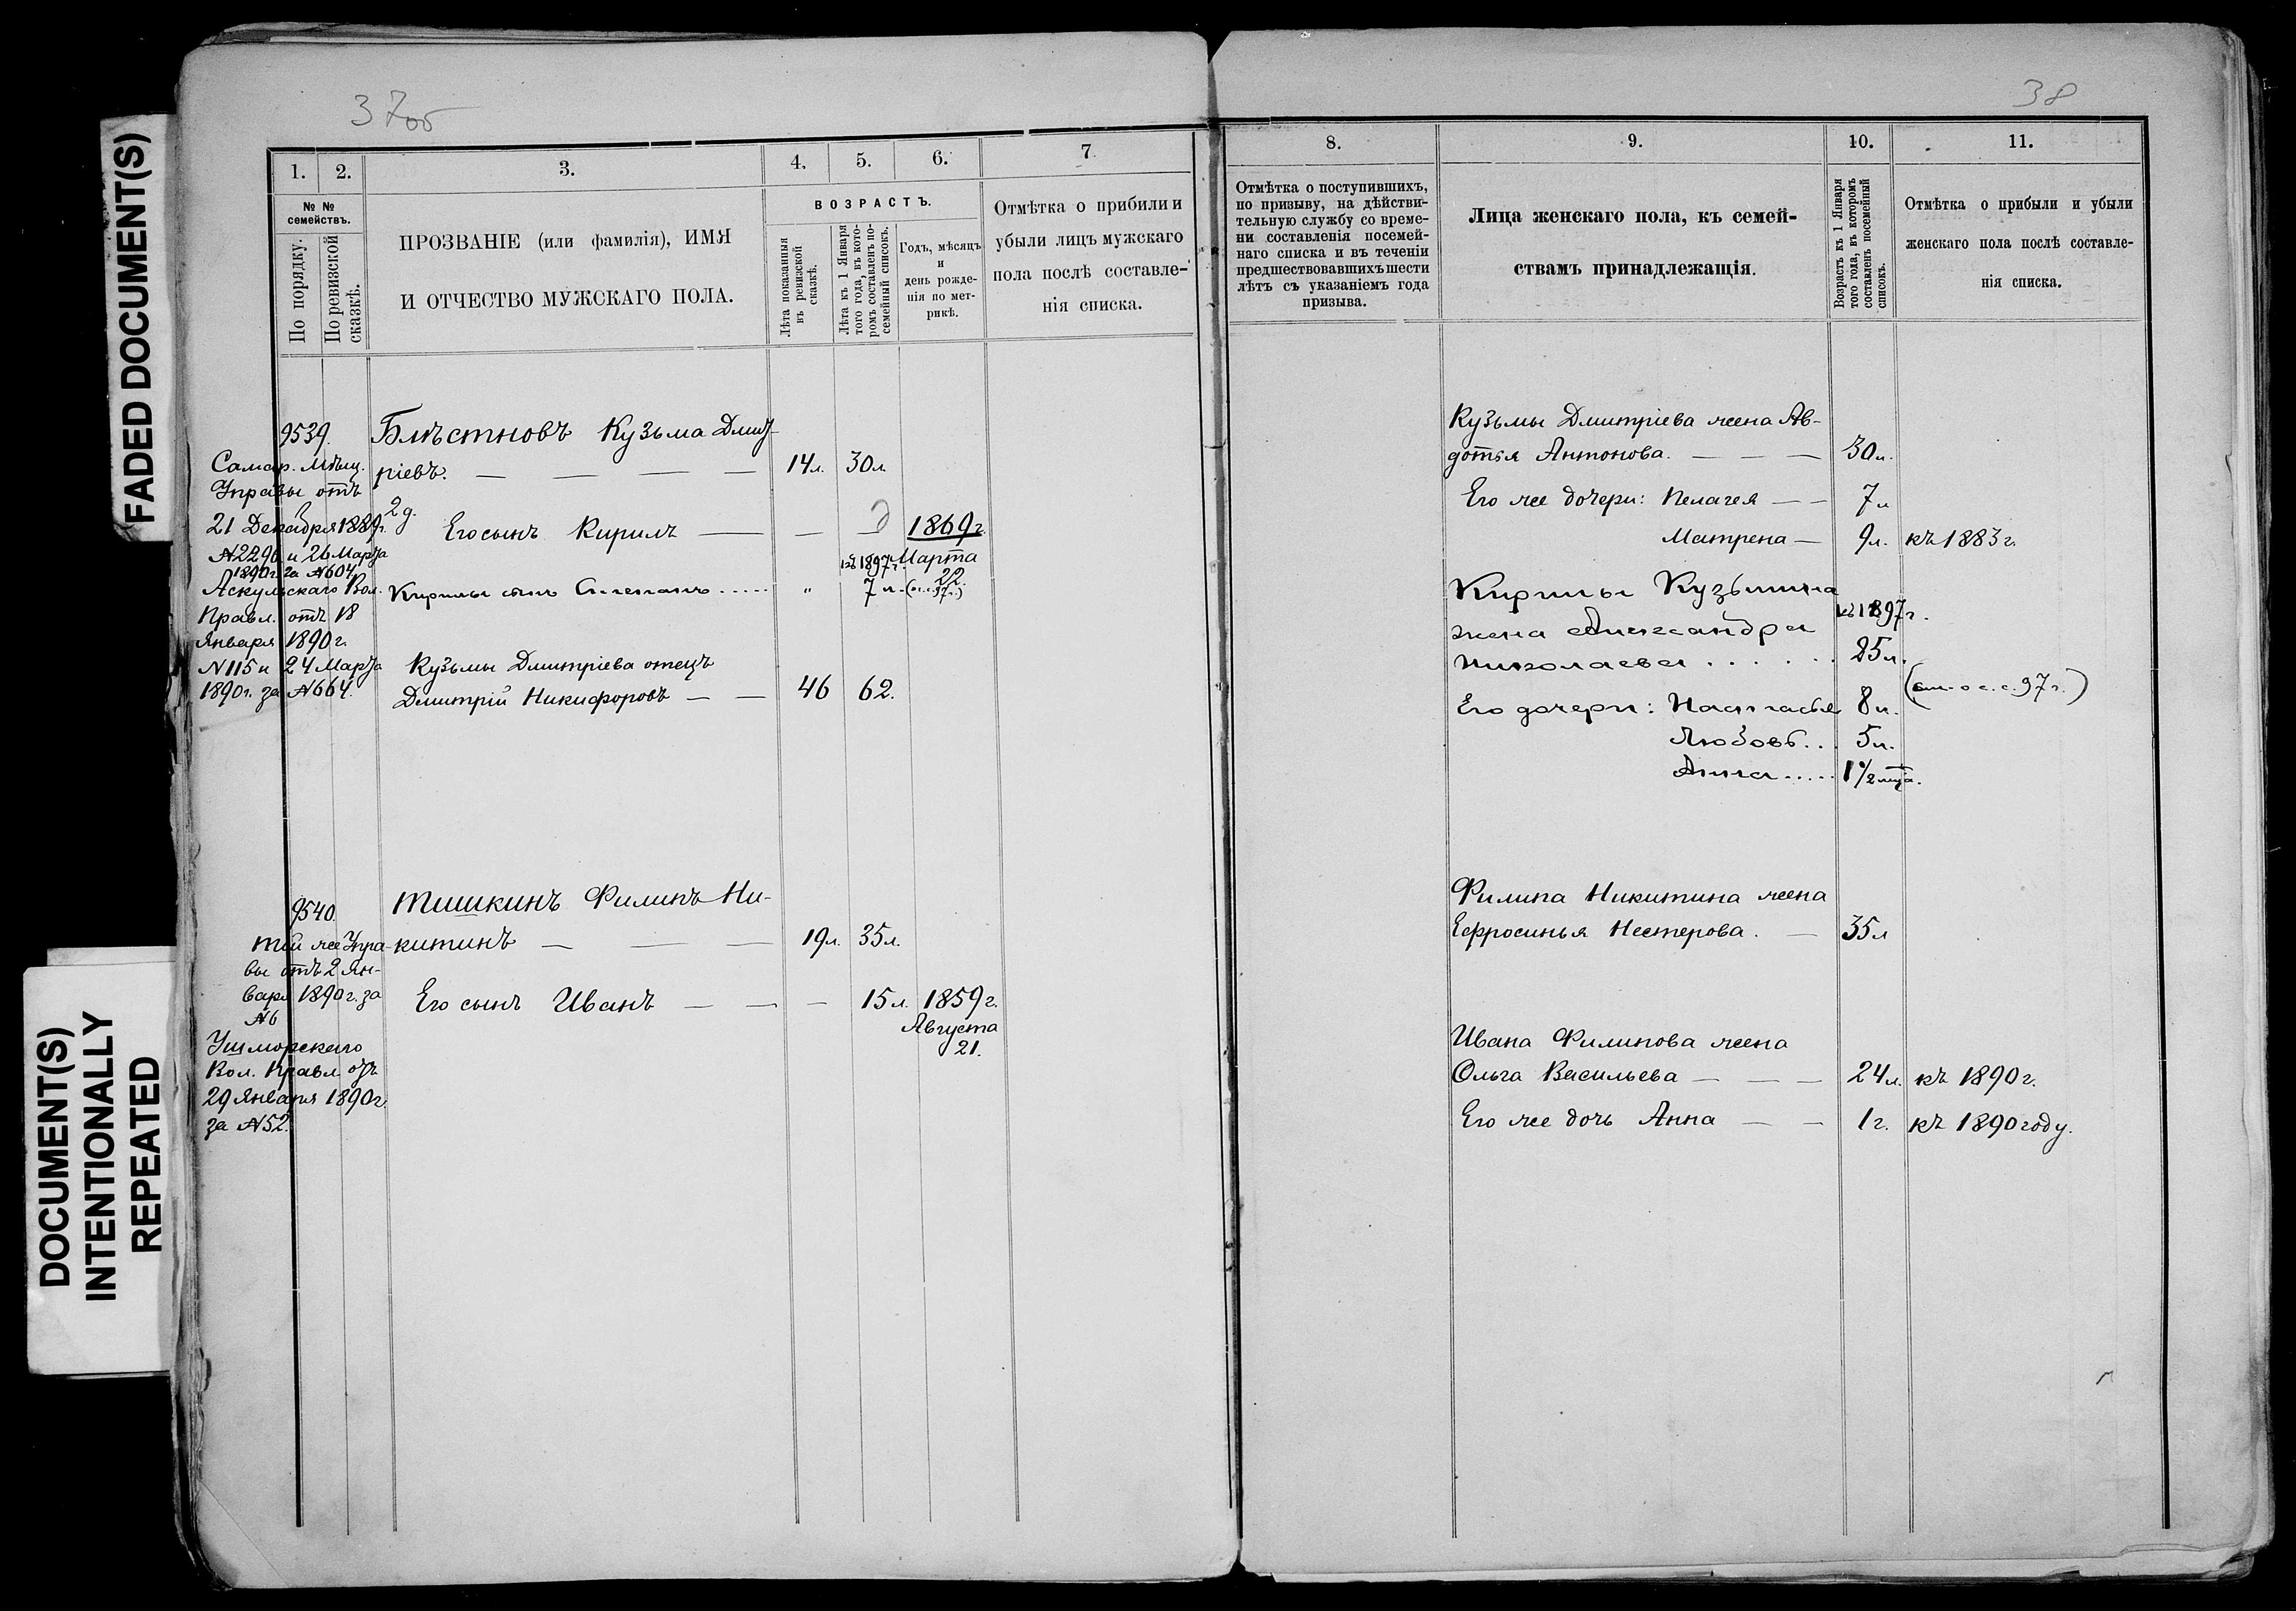 FADED DOCUMENT(S)
DOCUMENT(S)
INTENTIONALLY
REPEATED
37об
1. 2. 3. 4. 5. 6. 7
№ №
семействъ.
По порядку.
По ревизской
сказкѣ.
ПРОЗВАНІЕ (или фамилія), ИМЯ
И ОТЧЕСТВО МУЖСКАГО ПОЛА.
ВОЗРАСТЪ.
Лѣта показанныя
въ ревизской
сказкѣ.
Лѣта къ 1 Января
того года, въ кото-
ромъ составленъ по-
семейный списокъ.
Годъ, мѣсяцъ
и
день рожде-
нія по мет-
рикѣ.
Отмѣтка о прибыли и
убыли лицъ мужскаго
пола послѣ составле-
нія списка.
9539. Блѣстновъ Кузьма Дмит-
ріевъ. — — — 14л. 30л.
Самар. Мѣщ.
Управы отъ
21 Декабря 1889г.
№2296 и 26 Марта
1890г. за №604
Аскульскаго Вол.
Правл. отъ 18
Января 1890г.
№115 и 24 Марта
1890г. за №664.
2д.
Его сынъ Кирилъ — — 1869г.
Марта
22.
къ 1897г.
Кирилы сынъ Степанъ ..... " 7 л. (о.с.с. 97г.)
Кузьмы Дмитріева отецъ
Дмитрій Никифоровъ — — 46 62.
9540. Тишкинъ Филипъ Ни-
китинъ — — — 19л. 35л.
той же Упра-
вы отъ 2 Ян-
варя 1890г. за
№6
Его сынъ Иванъ — — — 15л. 1859г.
Августа
21.
Вол. Правл. отъ
29 Января 1890г.
за №52.
38
8. 9. 10. 11.
Отмѣтка о поступившихъ,
по призыву, на дѣйстви-
тельную службу со време-
ни составленія посемей-
наго списка и въ теченіи
предшествовавшихъ шести
лѣтъ съ указаніемъ года
призыва.
Лица женскаго пола, къ семей-
ствамъ принадлежащія.
Возрастъ къ 1 Января
того года, въ которомъ
составленъ посемейный
списокъ.
Отмѣтка о прибыли и убыли
женскаго пола послѣ составле-
нія списка.
Кузьмы Дмитріева жена Ав-
дотья Антонова. — — — 30л.
Его же дочери: Пелагея — — 7л
Матрена — 9л. къ 1883г.
Кирилы Кузьмина
жена Александра къ 1897г.
Николаева . . . . . . 25л.
Его дочери: Настасья 8л. (о.с.с. 97г.)
Любовь... 5л.
Анна ..... 1½ мца.
Филипа Никитина жена
Ефросинья Нестерова. — 35л
Ивана Филипова жена
Ольга Васильева — — — 24л. къ 1890г.
Его же дочь Анна — — 1г. къ 1890 году.